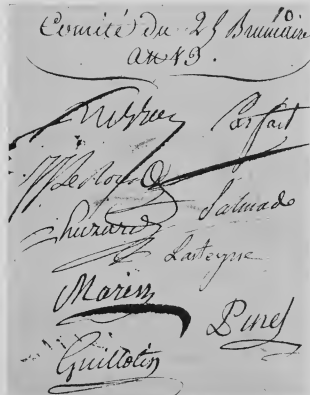 Comité du 25 Brumaire
an 13.
Parfait
M Leroux
Salmade
huzard
Lasteyrie
Marin
Pinel
Guillotin